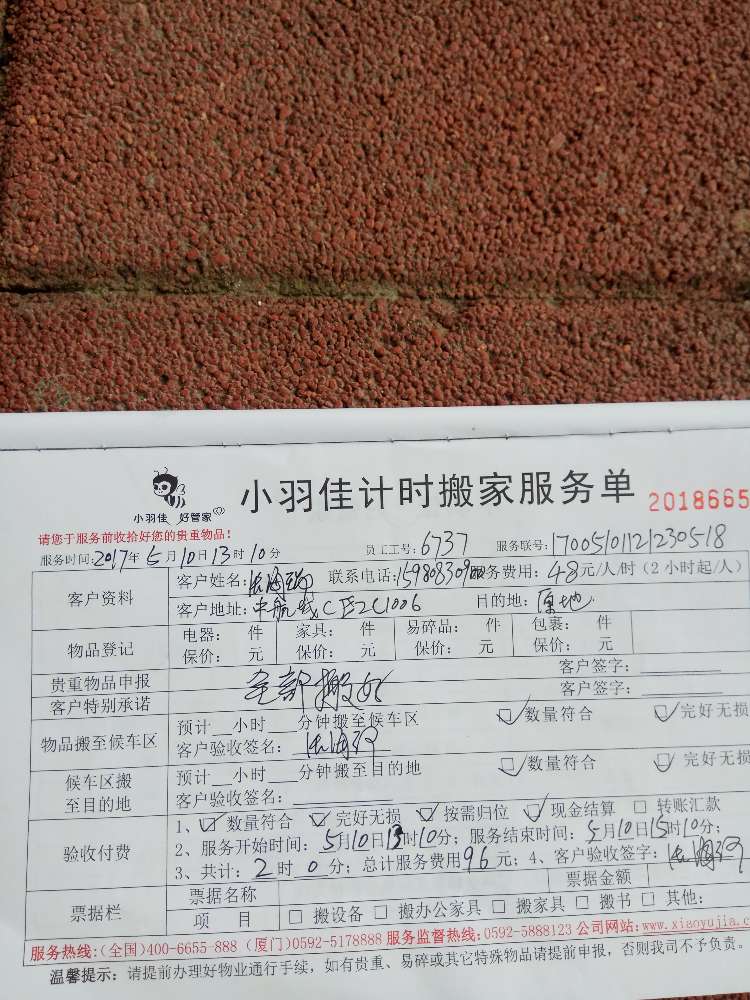 小羽佳 好管家
小羽佳计时搬家服务单 2018665
请您于服务前收拾好您的贵重物品!
服务时间:2017年5月10日13时10分 员工工号:6737 服务联号:17005101121230518
客户资料 客户姓名: 联系电话:159808309 服务费用:48元/人/时(2小时起/人)
客户地址:中航城C区2C1006 目的地:原地
物品登记 电器: 件 家具: 件 易碎品: 件 包裹: 件
保价: 元 保价: 元 保价: 元 保价: 元
贵重物品申报 客户签字:
客户特别承诺 全部搬好 客户签字:
物品搬至候车区 预计__小时__分钟搬至候车区 ☑数量符合 ☑完好无损
客户验收签名:
候车区搬至目的地 预计__小时__分钟搬至目的地 ☑数量符合 ☑完好无损
客户验收签名:
验收付费 1、☑数量符合 ☑完好无损 ☑按需归位 ☑现金结算 □转账汇款
2、服务开始时间:5月10日13时10分;服务结束时间:5月10日15时10分;
3、共计:2时0分;总计服务费用96元;4、客户验收签字:
票据栏 票据名称 票据金额
项 目 □搬设备 □搬办公家具 □搬家具 □搬书 □其他:
服务热线:(全国)400-6655-888 (厦门)0592-5178888 服务监督热线:0592-5888123 公司网站:www.xiaoyujia.c
温馨提示:请提前办理好物业通行手续,如有贵重、易碎或其它特殊物品请提前申报,否则我司不予负责。